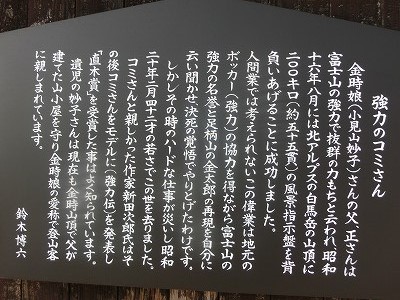 強力のコミさん
金時娘(小見山妙子)さんの父、正さんは
富士山の強力で抜群の力もちと云われ、昭和
十六年八月には北アルプスの白馬岳の山頂に
二〇〇キロ(約五十五貫)の風景指示盤を背
負いあげることに成功しました。
人間業では考えられないこの偉業は地元の
ボッカー(強力)の協力を得ながら富士山の
強力の名誉と足柄山の金太郎の再現を自分に
云い聞かせ決死の覚悟でやりとげたわけです。
しかしその時のハードな仕事が災いし昭和
二十年二月四十二才の若さでこの世を去りました。
コミさんと親しかった作家新田次郎氏はそ
の後コミさんをモデルに(強力伝)を発表し
「直木賞」を受賞した事はよく知られています。
遺児の妙子さんは現在も金時山頂で父が
建てた山小屋を守り金時娘の愛称で登山客
に親しまれています。
鈴木博六